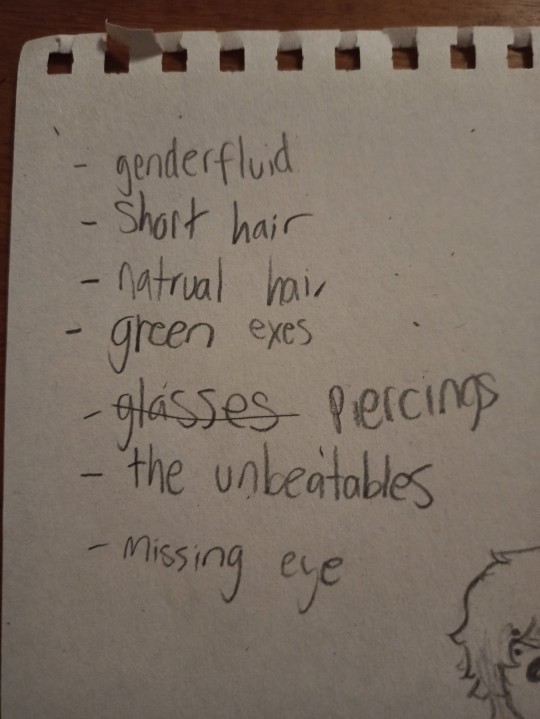 - genderfluid
- Short hair
- natrual hair
- green exes
- ~~glasses~~ piercings
- the unbeatables
- missing eye